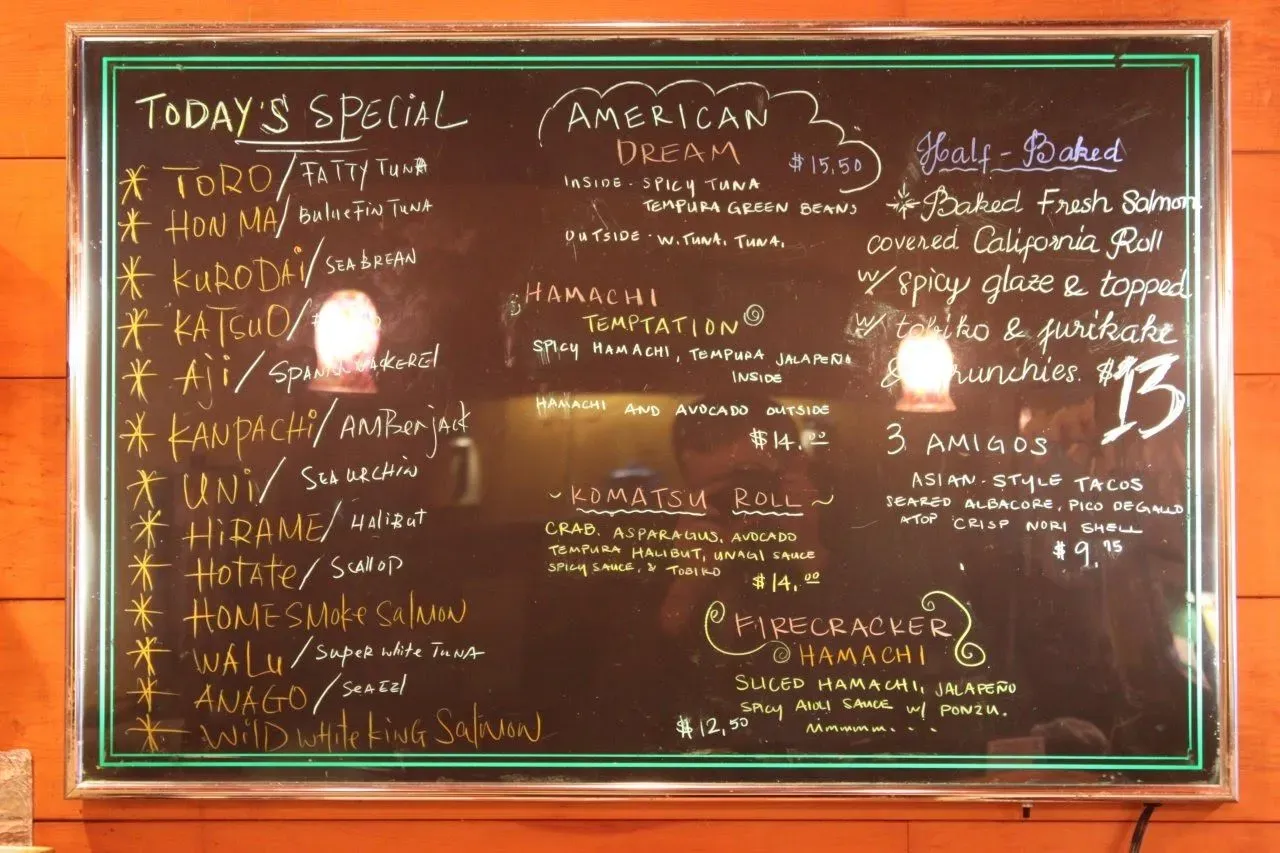 TODAY'S SPECIAL
* TORO / FATTY TUNA
* HON MA / BULUEFIN TUNA
* KURODAI / SEA BREAN
* KATSUO /
* Aji / SPANISH MACKEREL
* KANPACHI / AMBerjack
* UNI / SEA URCHIN
* HIRAME / HALIBUT
* HOTATE / SCALLOP
* HOMESMOKE SALMON
* WALU / SUPER WHITE TUNA
* ANAGO / SEA EEL
* WILD WHITE KING SALMON
AMERICAN
DREAM $15.50
INSIDE - SPICY TUNA
TEMPURA GREEN BEANS
OUTSIDE - W. TUNA, TUNA.
HAMACHI
TEMPTATION
SPICY HAMACHI, TEMPURA JALAPEÑO
INSIDE
HAMACHI AND AVOCADO OUTSIDE
$14.00
~ KOMATSU ROLL ~
CRAB, ASPARAGUS, AVOCADO
TEMPURA HALIBUT, UNAGI SAUCE
SPICY SAUCE, & TOBIKO
$14.00
FIRECRACKER
HAMACHI
SLICED HAMACHI, JALAPEÑO
SPICY AIOLI SAUCE W/ PONZU.
$12.50 Mmmmm. . . .
Half-Baked
* Baked Fresh Salmon
covered California Roll
w/ spicy glaze & topped
w/ tobiko & furikake
& crunchies. $13
3 AMIGOS
ASIAN-STYLE TACOS
SEARED ALBACORE, PICO DE GALLO
ATOP CRISP NORI SHELL
$9.75